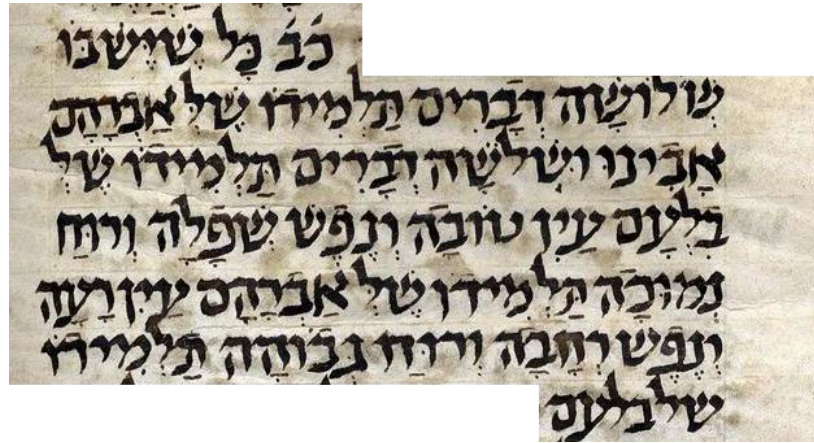 כֹ֗ב֗ כָּל שֶׁיֶּשׁבּוֹ
שְׁלוֹשָׁה דְבָרִים תַּלְמִידוֹ שֶׁלְ אַבְרָהָם
אָבִינוּ וּשְׁלֹשָׁה דְבָרִים תַּלְמִידוֹ שֶׁלְ
בִּלְעָם עַיִן טוֹבָה וְנֶפֶשׁ שְׁפָלָה וְרוּחַ
נְמוּכָה תַּלְמִידוֹ שֶׁלְ אַבְרָהָם עַיִן רָעָה
וְנֶפֶשׁ רְחָבָה וְרוּחַ גְּבוֹהָה תַּלְמִידוֹ
שֶׁלבִּלְעָם